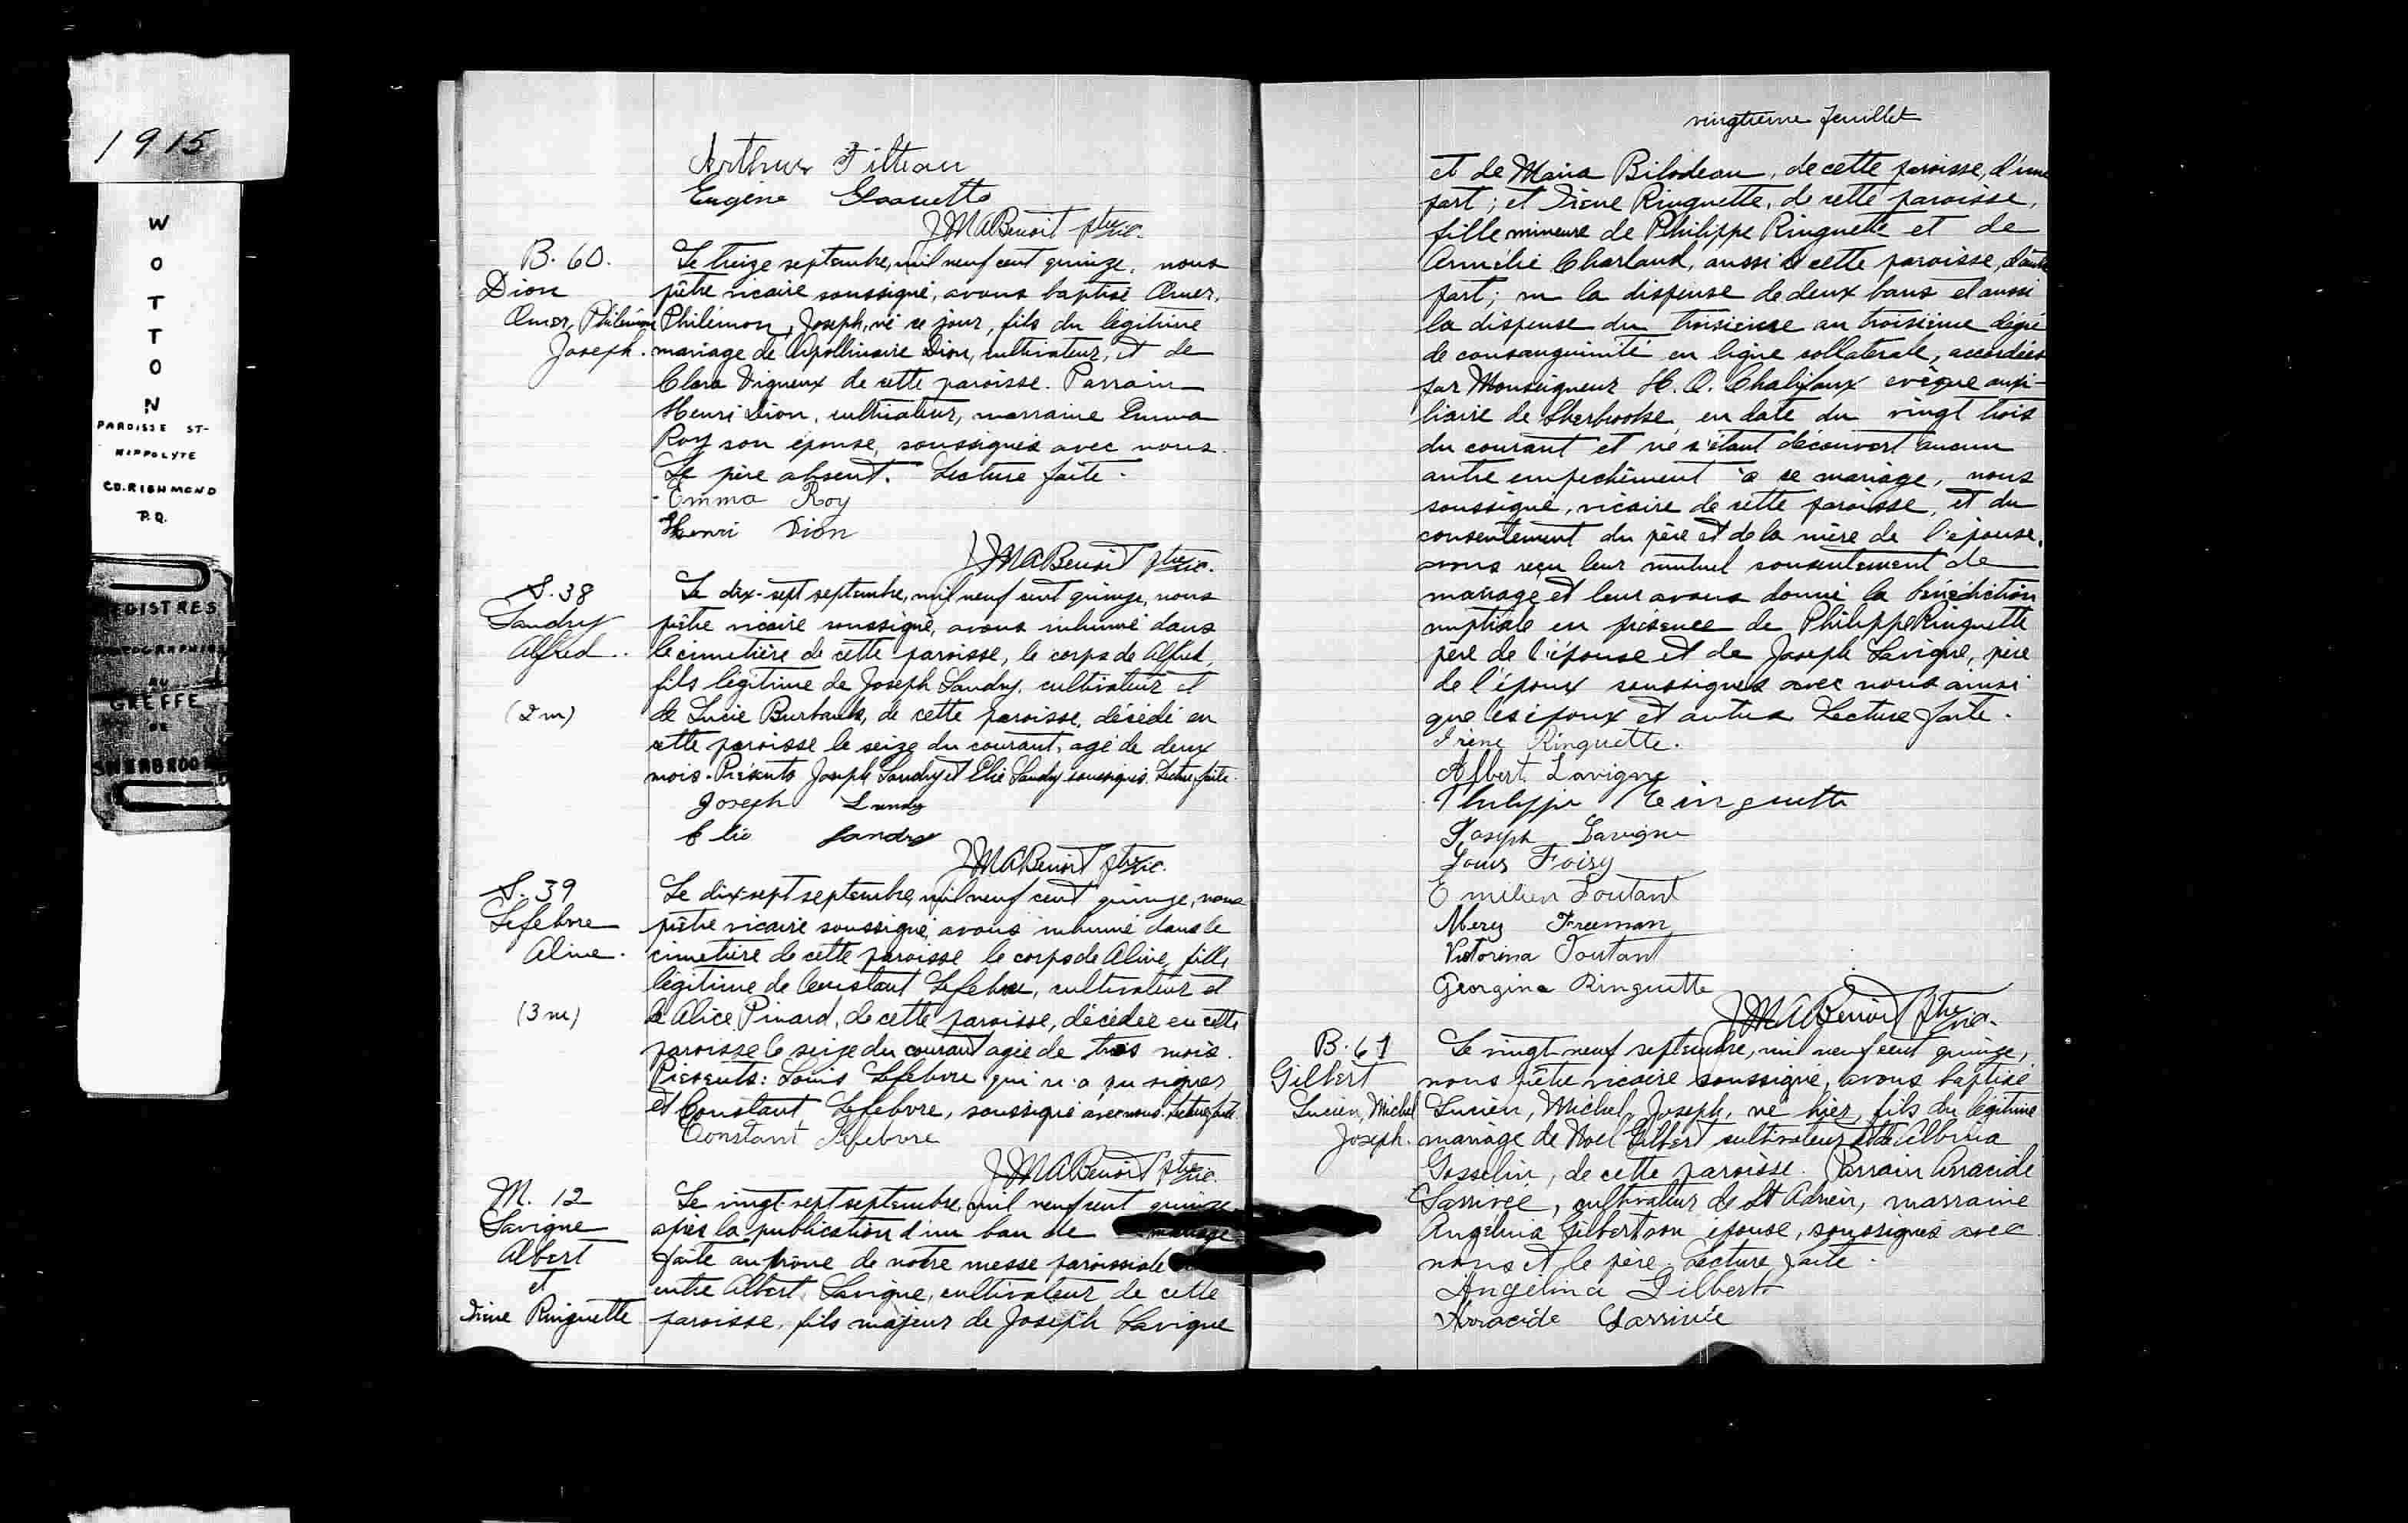 1915
W
O
T
T
O
N
PAROISSE ST-
HIPPOLYTE
CO. RICHMOND
P.Q.
REGISTRES
PHOTOGRAPHIÉS
AU
GREFFE
DE
SHERBROOKE
Arthur Filteau
Eugène
JMABenoit ptre vic.
B. 60.
Dion
Omer, Philémon
Joseph.
Le treize septembre, mil neuf cent quinze, nous
prêtre vicaire soussigné, avons baptisé Omer,
Philémon, Joseph, né ce jour, fils du légitime
mariage de Apollinaire Dion, cultivateur, et de
Clara Vigneux de cette paroisse. Parrain
Henri Dion, cultivateur, marraine Emma
Roy son épouse, soussignés avec nous.
Le père absent. Lecture faite.
Emma Roy
Henri Dion
JMABenoit ptre vic.
S. 38
Landry
Alfred.
(2 m)
Le dix-sept septembre, mil neuf cent quinze, nous
prêtre vicaire soussigné, avons inhumé dans
le cimetière de cette paroisse, le corps de Alfred,
fils légitime de Joseph Landry, cultivateur et
de Lucie Burbank, de cette paroisse, décédé en
cette paroisse le seize du courant, agé de deux
mois. Présents Joseph Landry et Elie Landry soussignés. Lecture faite.
Joseph Landry
Elie Landry
JMABenoit ptre vic.
S. 39
Lefebvre
Aline.
(3 m)
Le dix-sept septembre, mil neuf cent quinze, nous
prêtre vicaire soussigné, avons inhumé dans le
cimetière de cette paroisse le corps de Aline, fille
légitime de Constant Lefebvre, cultivateur et
de Alice Pinard, de cette paroisse, décédée en cette
paroisse le seize du courant agée de trois mois.
Présents: Louis Lefebvre qui n'a pu signer
et Constant Lefebvre, soussigné avec nous. Lecture faite.
Constant Lefebvre
JMABenoit ptre vic.
M. 12
Lavigne
Albert
et
Irène Ringuette
Le vingt-sept septembre, mil neuf cent quinze
après la publication d'un ban de mariage
faite au prône de notre messe paroissiale
entre Albert Lavigne, cultivateur de cette
paroisse, fils majeur de Joseph Lavigne
vingtième feuillet
et de Maria Bilodeau, de cette paroisse, d'une
part; et Irène Ringuette, de cette paroisse,
fille mineure de Philippe Ringuette et de
Armélie Charland, aussi de cette paroisse, d'autre
part; vu la dispense de deux bans et aussi
la dispense du troisième au troisième degré
de consanguinité en ligne collatérale, accordées
par Monseigneur H. O. Chalifoux evêque auxi-
liaire de Sherbrooke, en date du vingt trois
du courant et ne s'étant découvert aucun
autre empechêment à ce mariage, nous
soussigné, vicaire de cette paroisse, et du
consentement du père et de la mère de l'épouse,
avons reçu leur mutuel consentement de
mariage et leur avons donné la bénédiction
nuptiale en présence de Philippe Ringuette
père de l'épouse et de Joseph Lavigne, père
de l'époux soussignés avec nous ainsi
que les époux et autres. Lecture faite.
Irène Ringuette.
Albert Lavigne
Philippe Ringuette
Joseph Lavigne
Louis Foisy
Emilien Toutant
Mery Freeman
Victorina Toutant
Georgina Ringuette
JMABenoit ptre vic.
B. 61
Gilbert
Lucien, Michel
Joseph.
Le vingt-neuf septembre, mil neuf cent quinze,
nous prêtre vicaire soussigné, avons baptisé
Lucien, Michel, Joseph, né hier, fils du légitime
mariage de Noel Gilbert cultivateur et de Albina
Gosselin, de cette paroisse. Parrain Arracide
Larrivée, cultivateur de St Adrien, marraine
Angélina Gilbert son épouse, soussignés avec
nous et le père. Lecture faite.
Angélina Gilbert
Arracide Larrivée